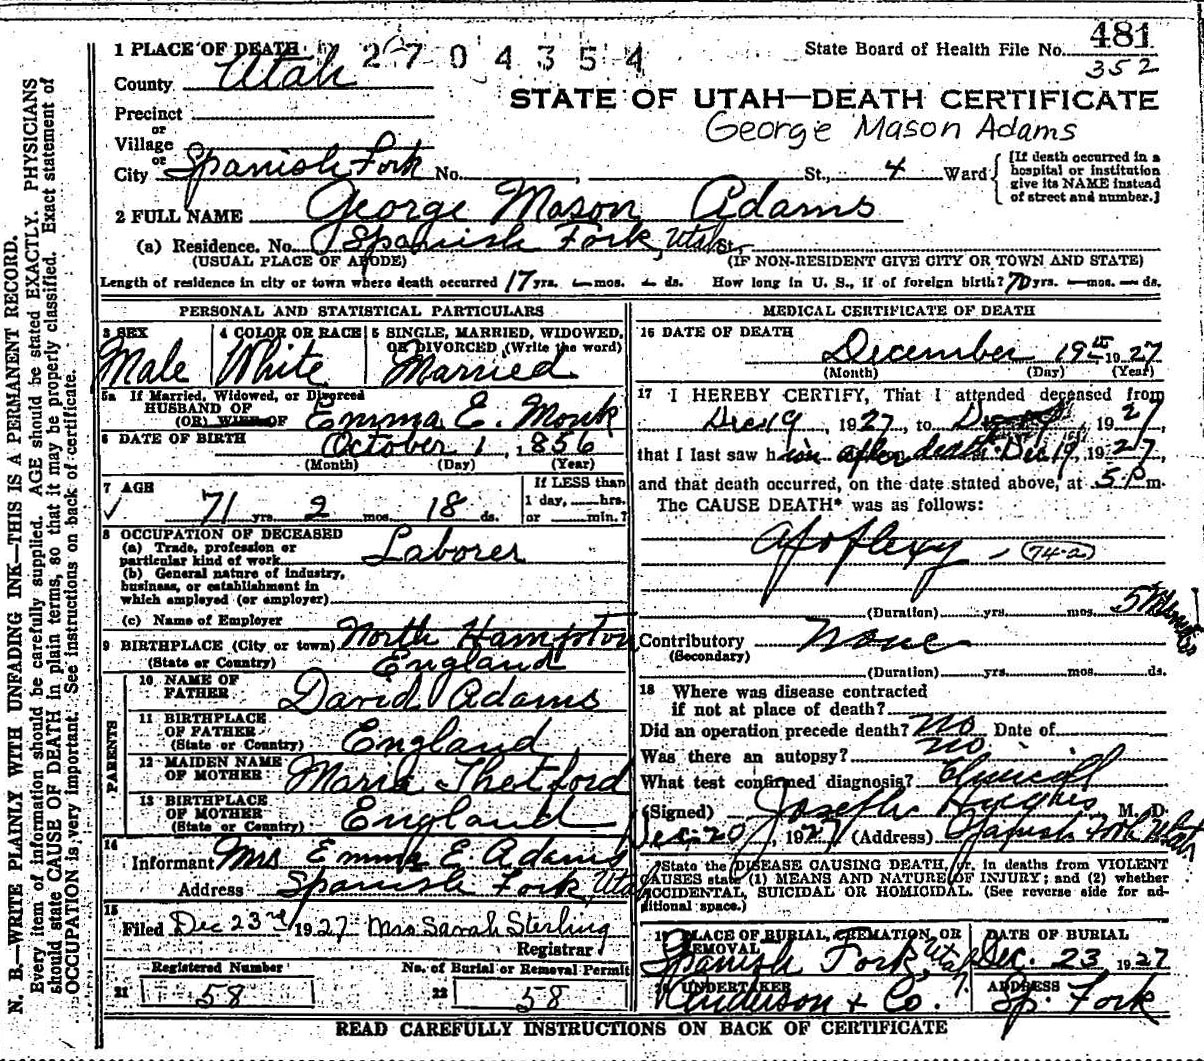 N. B.—WRITE PLAINLY WITH UNFADING INK—THIS IS A PERMANENT RECORD.
Every item of information should be carefully supplied. AGE should be stated EXACTLY. PHYSICIANS
should state CAUSE OF DEATH in plain terms, so that it may be properly classified. Exact statement of
OCCUPATION is very important. See instructions on back of certificate.
1 PLACE OF DEATH 2704354
State Board of Health File No. 481
352
County Utah
STATE OF UTAH—DEATH CERTIFICATE
George Mason Adams
Precinct
or
Village
or
City Spanish Fork No. , St., 4 Ward
[If death occurred in a
hospital or institution
give its NAME instead
of street and number.]
2 FULL NAME George Mason Adams
(a) Residence. No. Spanish Fork, Utah St.
(USUAL PLACE OF ABODE) (IF NON-RESIDENT GIVE CITY OR TOWN AND STATE)
Length of residence in city or town where death occurred 17 yrs. — mos. — ds. How long in U. S., if of foreign birth? 70 yrs. — mos. — ds.
PERSONAL AND STATISTICAL PARTICULARS
3 SEX
Male
4 COLOR OR RACE
White
5 SINGLE, MARRIED, WIDOWED,
OR DIVORCED (Write the word)
Married
5a If Married, Widowed, or Divorced
HUSBAND OF
(OR) WIFE OF Emma E. Monk
6 DATE OF BIRTH October 1, 1856
(Month) (Day) (Year)
7 AGE
71 yrs. 2 mos. 18 ds.
If LESS than
1 day, hrs.
or min.?
8 OCCUPATION OF DECEASED
(a) Trade, profession or
particular kind of work Laborer
(b) General nature of industry,
business, or establishment in
which employed (or employer)
(c) Name of Employer
9 BIRTHPLACE (City or town) North Hampton
(State or Country) England
PARENTS
10 NAME OF
FATHER David Adams
11 BIRTHPLACE
OF FATHER
(State or Country) England
12 MAIDEN NAME
OF MOTHER Maria Thetford
13 BIRTHPLACE
OF MOTHER
(State or Country) England
14
Informant Mrs Emma E. Adams
Address Spanish Fork, Utah
15
Filed Dec 23rd 1927 Mrs Sarah Sterling
Registrar
Registered Number No. of Burial or Removal Permit
21 58 22 58
MEDICAL CERTIFICATE OF DEATH
16 DATE OF DEATH
December 19th 1927
(Month) (Day) (Year)
17 I HEREBY CERTIFY, That I attended deceased from
Dec 19, 1927, to Dec 1927,
that I last saw him after death Dec 19, 1927,
and that death occurred, on the date stated above, at 5 P m.
The CAUSE DEATH* was as follows:
Apoplexy - 74-a
(Duration) yrs. mos. 5 Minutes
Contributory None
(Secondary)
(Duration) yrs. mos. ds.
18 Where was disease contracted
if not at place of death?
Did an operation precede death? No Date of
Was there an autopsy? no
What test confirmed diagnosis? Clinical
(Signed) Joseph Hughes M. D.
Dec-20, 1927 (Address) Spanish Fork Utah
*State the DISEASE CAUSING DEATH, or, in deaths from VIOLENT
CAUSES state (1) MEANS AND NATURE OF INJURY; and (2) whether
ACCIDENTAL, SUICIDAL OR HOMICIDAL. (See reverse side for ad-
ditional space.)
19 PLACE OF BURIAL, CREMATION, OR
REMOVAL
Spanish Fork, Utah
DATE OF BURIAL
Dec. 23 1927
20 UNDERTAKER
Anderson + Co.
ADDRESS
Sp. Fork
READ CAREFULLY INSTRUCTIONS ON BACK OF CERTIFICATE